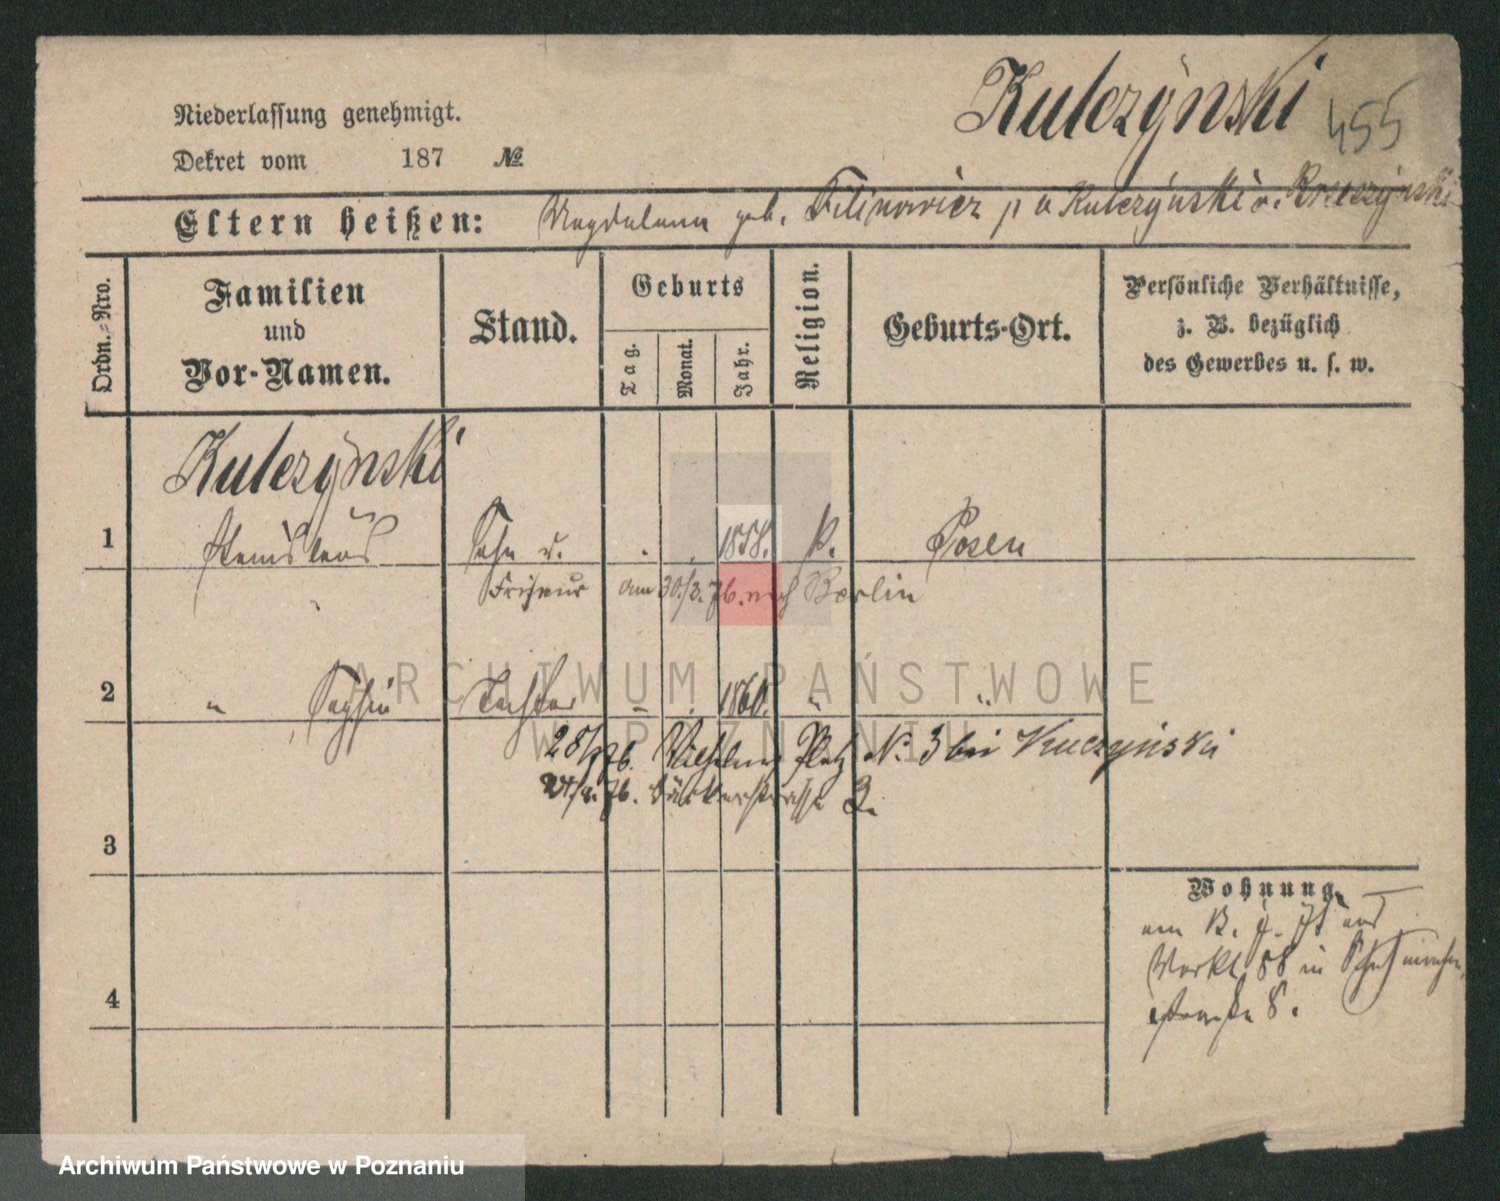 Kulczÿnski 455
Niederlassung genehmigt.
Dekret vom 187 №
Eltern heißen: Magdalena geb. Filipowicz Kulczÿnski
Ordn.-Nro.
Familien und Vor-Namen.
Stand.
Geburts
Tag.
Monat.
Jahr.
Religion.
Geburts-Ort.
Persönliche Verhältnisse,
z. B. bezüglich
des Gewerbes u. s. w.
Kulczÿnski
1 Stanislaus Sohn u. 1858. k. Posen
Friseur am 30./3. 76. nach Berlin
2 " Sophie Tochter 1860. " "
76. Wilhelms Platz № 3 bei Kuczynski
76. Bäckerstrasse
3
Wohnung.
Markt 88 in
strasse 8.
4
ARCHIWUM PAŃSTWOWE
W POZNANIU
Archiwum Państwowe w Poznaniu